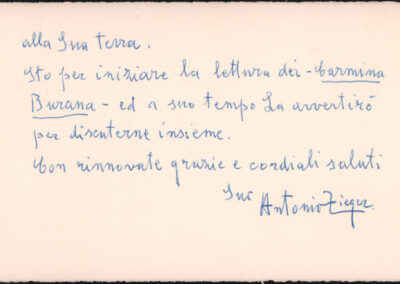 alla Sua terra.
Sto per iniziare la lettura dei - Carmina
Burana - ed a suo tempo La avvertirò
per discuterne insieme.
Con rinnovate grazie e cordiali saluti
Suo
Antonio Zieger.